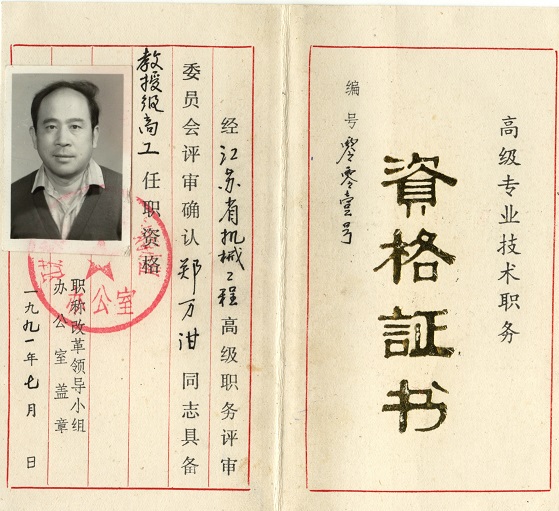 高级专业技术职务
资格証书
编号零零壹号
经江苏省机械工程高级职务评审
委员会评审确认郑万泔同志具备
教授级高工任职资格
职称改革领导小组
办公室盖章
一九九一年七月 日
办公室